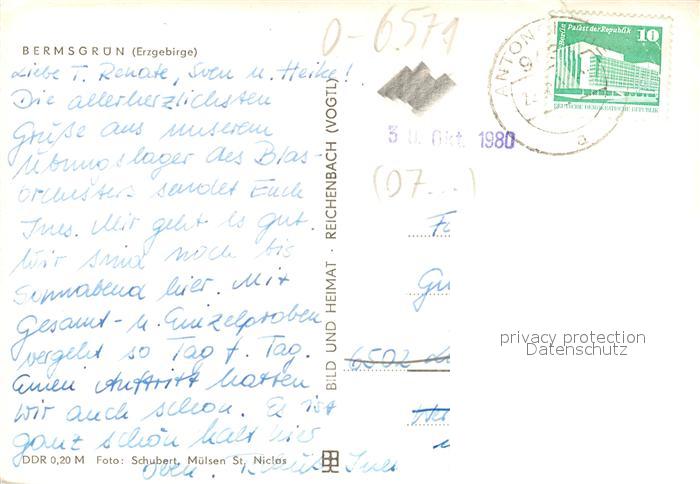 O-6571
BERMSGRÜN (Erzgebirge)
Liebe T. Renate, Sven u. Heike!
Die allerherzlichsten
Grüße aus unserem
Übungslager des Blas-
orchesters sendet Euch
Ines. Mir geht es gut.
Wir sind noch bis
Sonnabend hier. Mit
Gesamt- u. Einzelproben
vergeht so Tag f. Tag.
Einen Auftritt hatten
wir auch schon. Es ist
ganz schön kalt hier
oben. Tschüß Ines
DDR 0,20 M Foto: Schubert, Mülsen St. Niclas
BILD UND HEIMAT · REICHENBACH (VOGTL)
Berlin Palast der Republik
10
DEUTSCHE DEMOKRATISCHE REPUBLIK
ANTON
a
30. Okt. 1980
(07...)
6502
privacy protection
Datenschutz